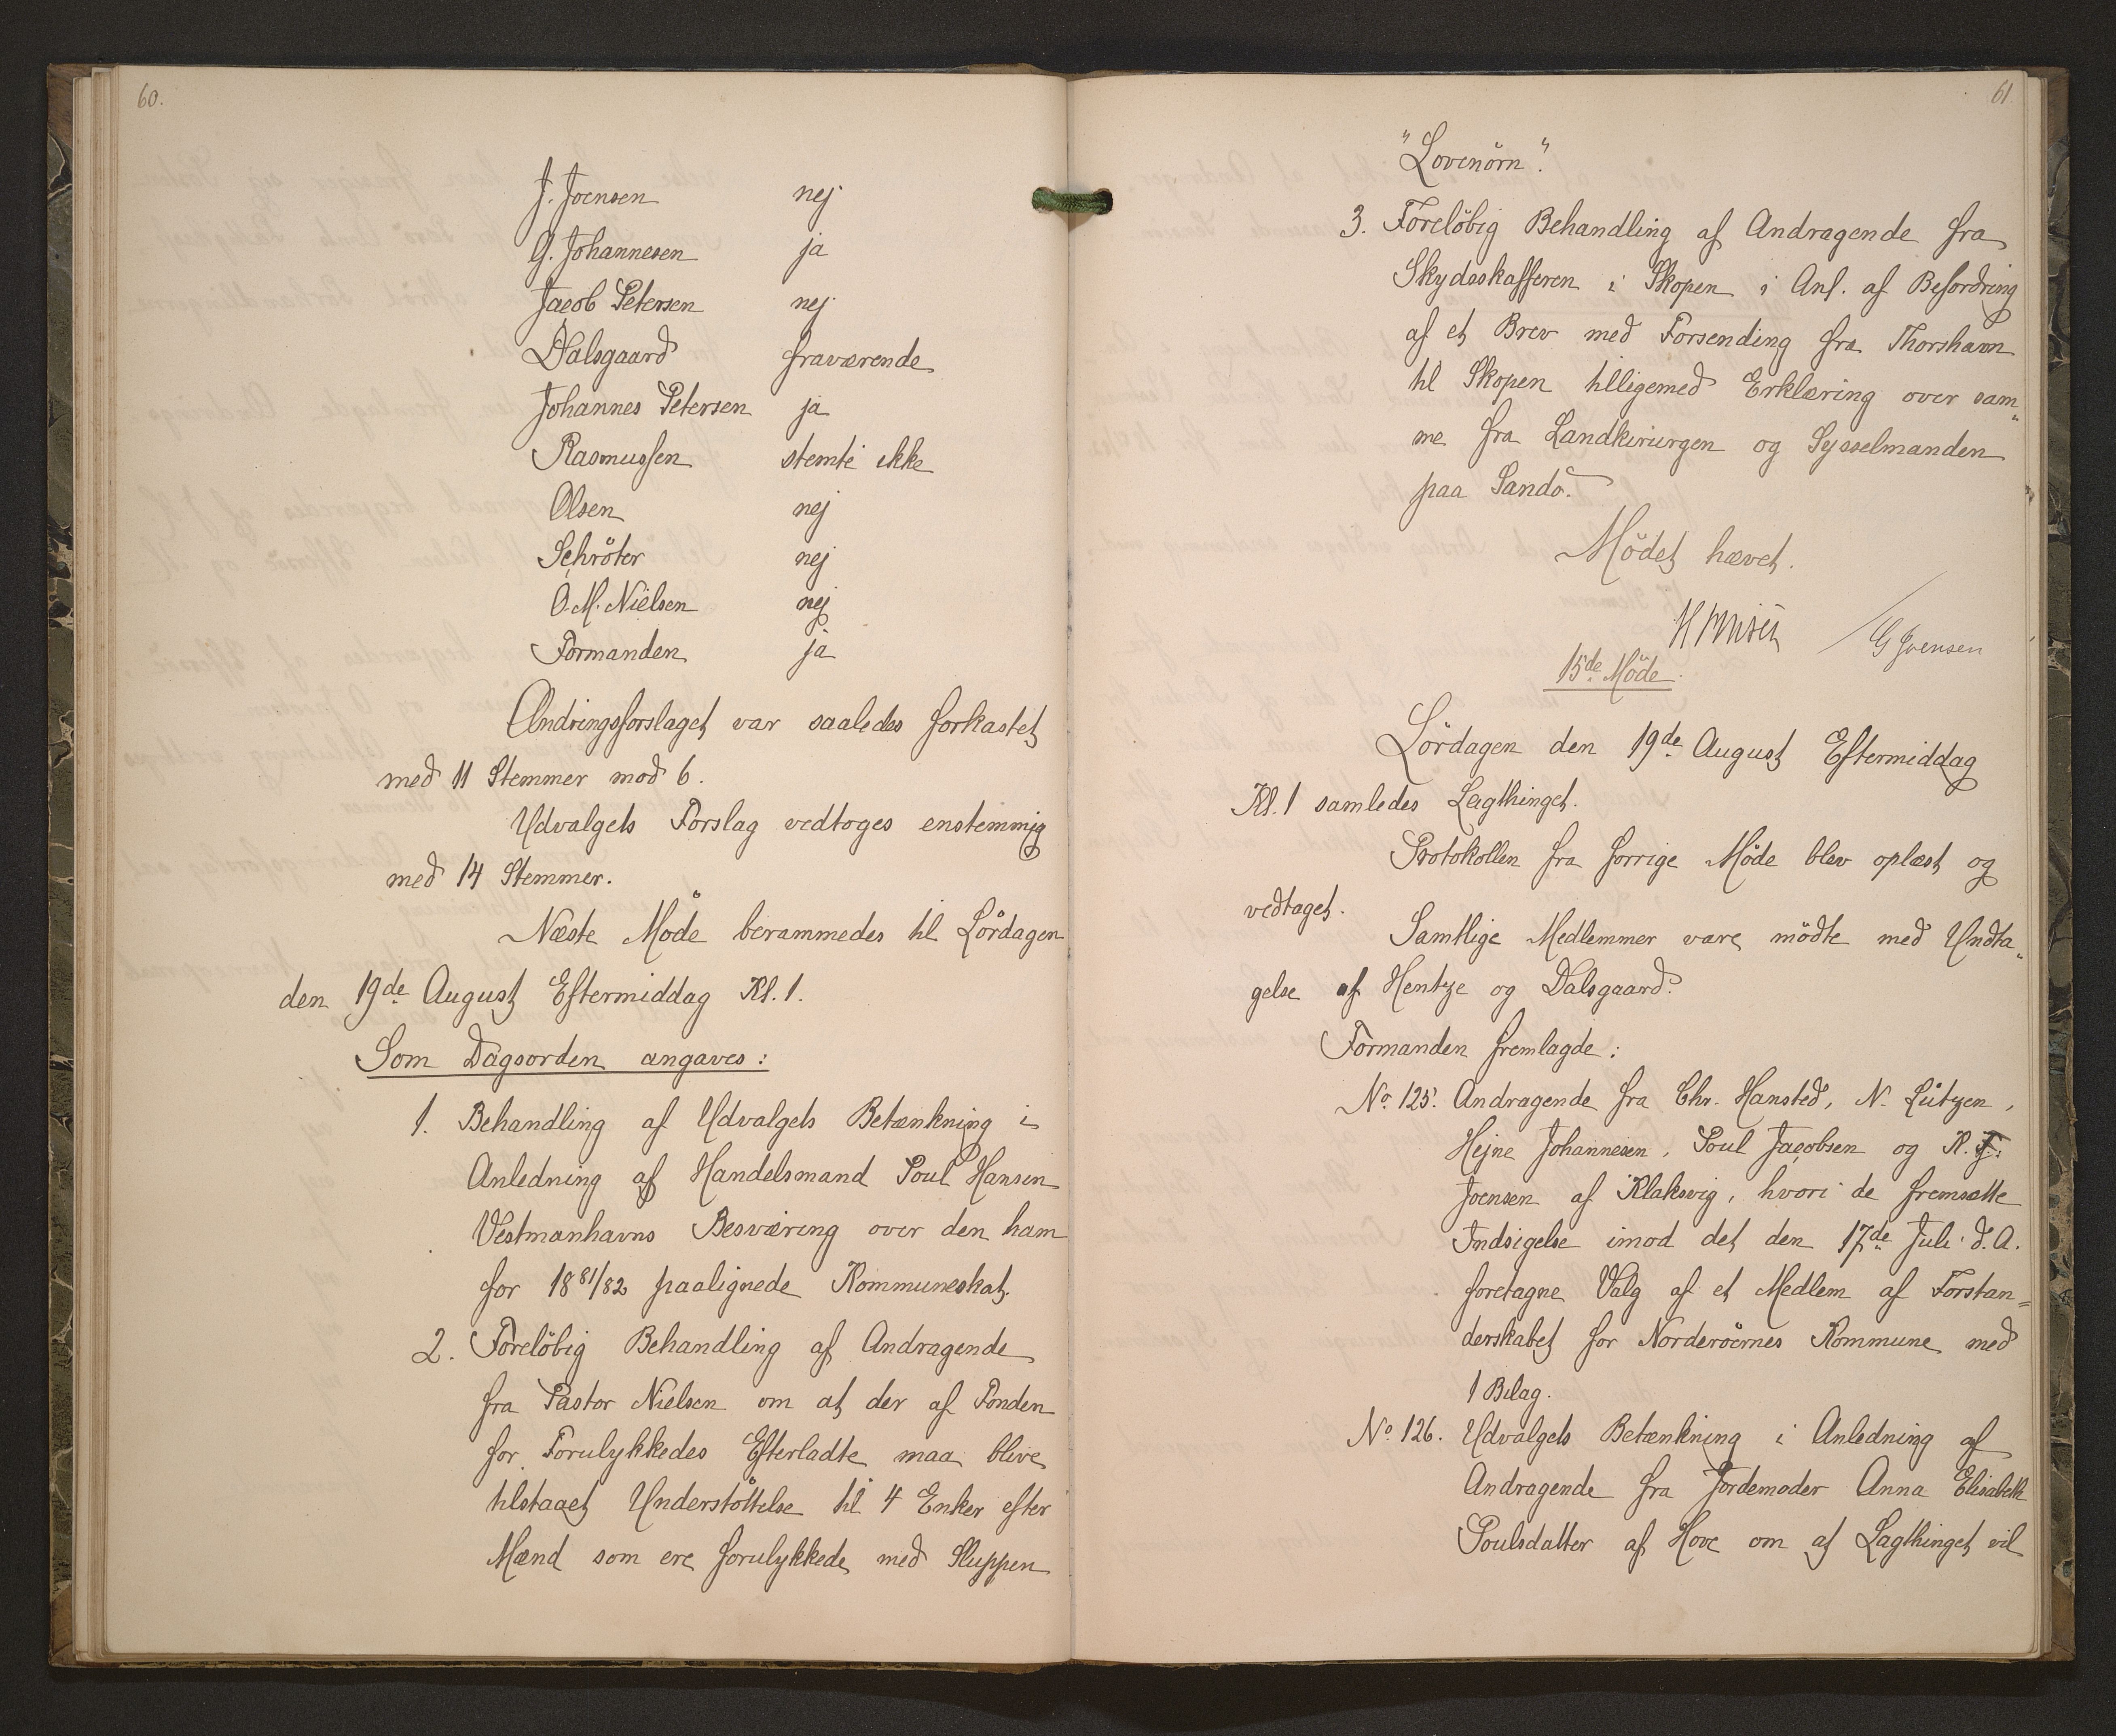 60.
J. Joensen nej
G. Johannesen ja
Jacob Petersen nej
Dalsgaard fraværende
Johannes Petersen ja
Rasmussen stemte ikke
Olsen nej
Schröter nej
O. M. Nielsen nej
Formanden ja
Ændringsforslaget var saaledes forkastet
med 11 Stemmer mod 6.
Udvalgets Forslag vedtoges enstemmig
med 14 Stemmer.
Næste Möde berammedes til Lördagen
den 19de August Eftermiddag Kl. 1.
Som Dagsorden angaves:
1. Behandling af Udvalgets Betænkning i
Anledning af Handelsmand Poul Hansen
Vestmanhavns Besværing over den ham
for 1881/82 paalignede Kommuneskat.
2. Foreløbig Behandling af Andragende
fra Pastor Nielsen om at der af Fonden
for Forulykkedes Efterladte maa blive
tilstaaet Understöttelse til 4 Enker efter
Mænd som ere forulykkede med Sluppen
61
"Lovenörn".
3. Forelöbig Behandling af Andragende fra
Skydsskafferen i Skopen i Anl. af Befordring
af et Brev med Forsending fra Thorshavn
til Skopen tilligemed Erklæring over sam„
me fra Landkirurgen og Sysselmanden
paa Sandö.
Mödet hævet.
G Joensen
15de Möde.
Lördagen den 19de August Eftermiddag
Kl. 1 samledes Lagthinget.
Protokollen fra forrige Möde blev oplæst og
vedtaget.
Samtlige Medlemmer vare mödte med Undta„
gelse af Hentze og Dalsgaard.
Formanden fremlagde:
No. 125. Andragende fra Chr. Hansted, N. Lützen,
Hejne Johannesen, Poul Jacobsen og K. J.
Joensen af Klaksvig, hvori de fremsætte
Indsigelse imod det den 17de Juli d. A.
foretagne Valg af et Medlem af Forstan=
derskabet for Norderöernes Kommune med
1 Bilag.
No. 126. Udvalgets Betænkning i Anledning af
Andragende fra Jordemoder Anna Elisabeth
Poulsdatter af Hove om at Lagthinget vil